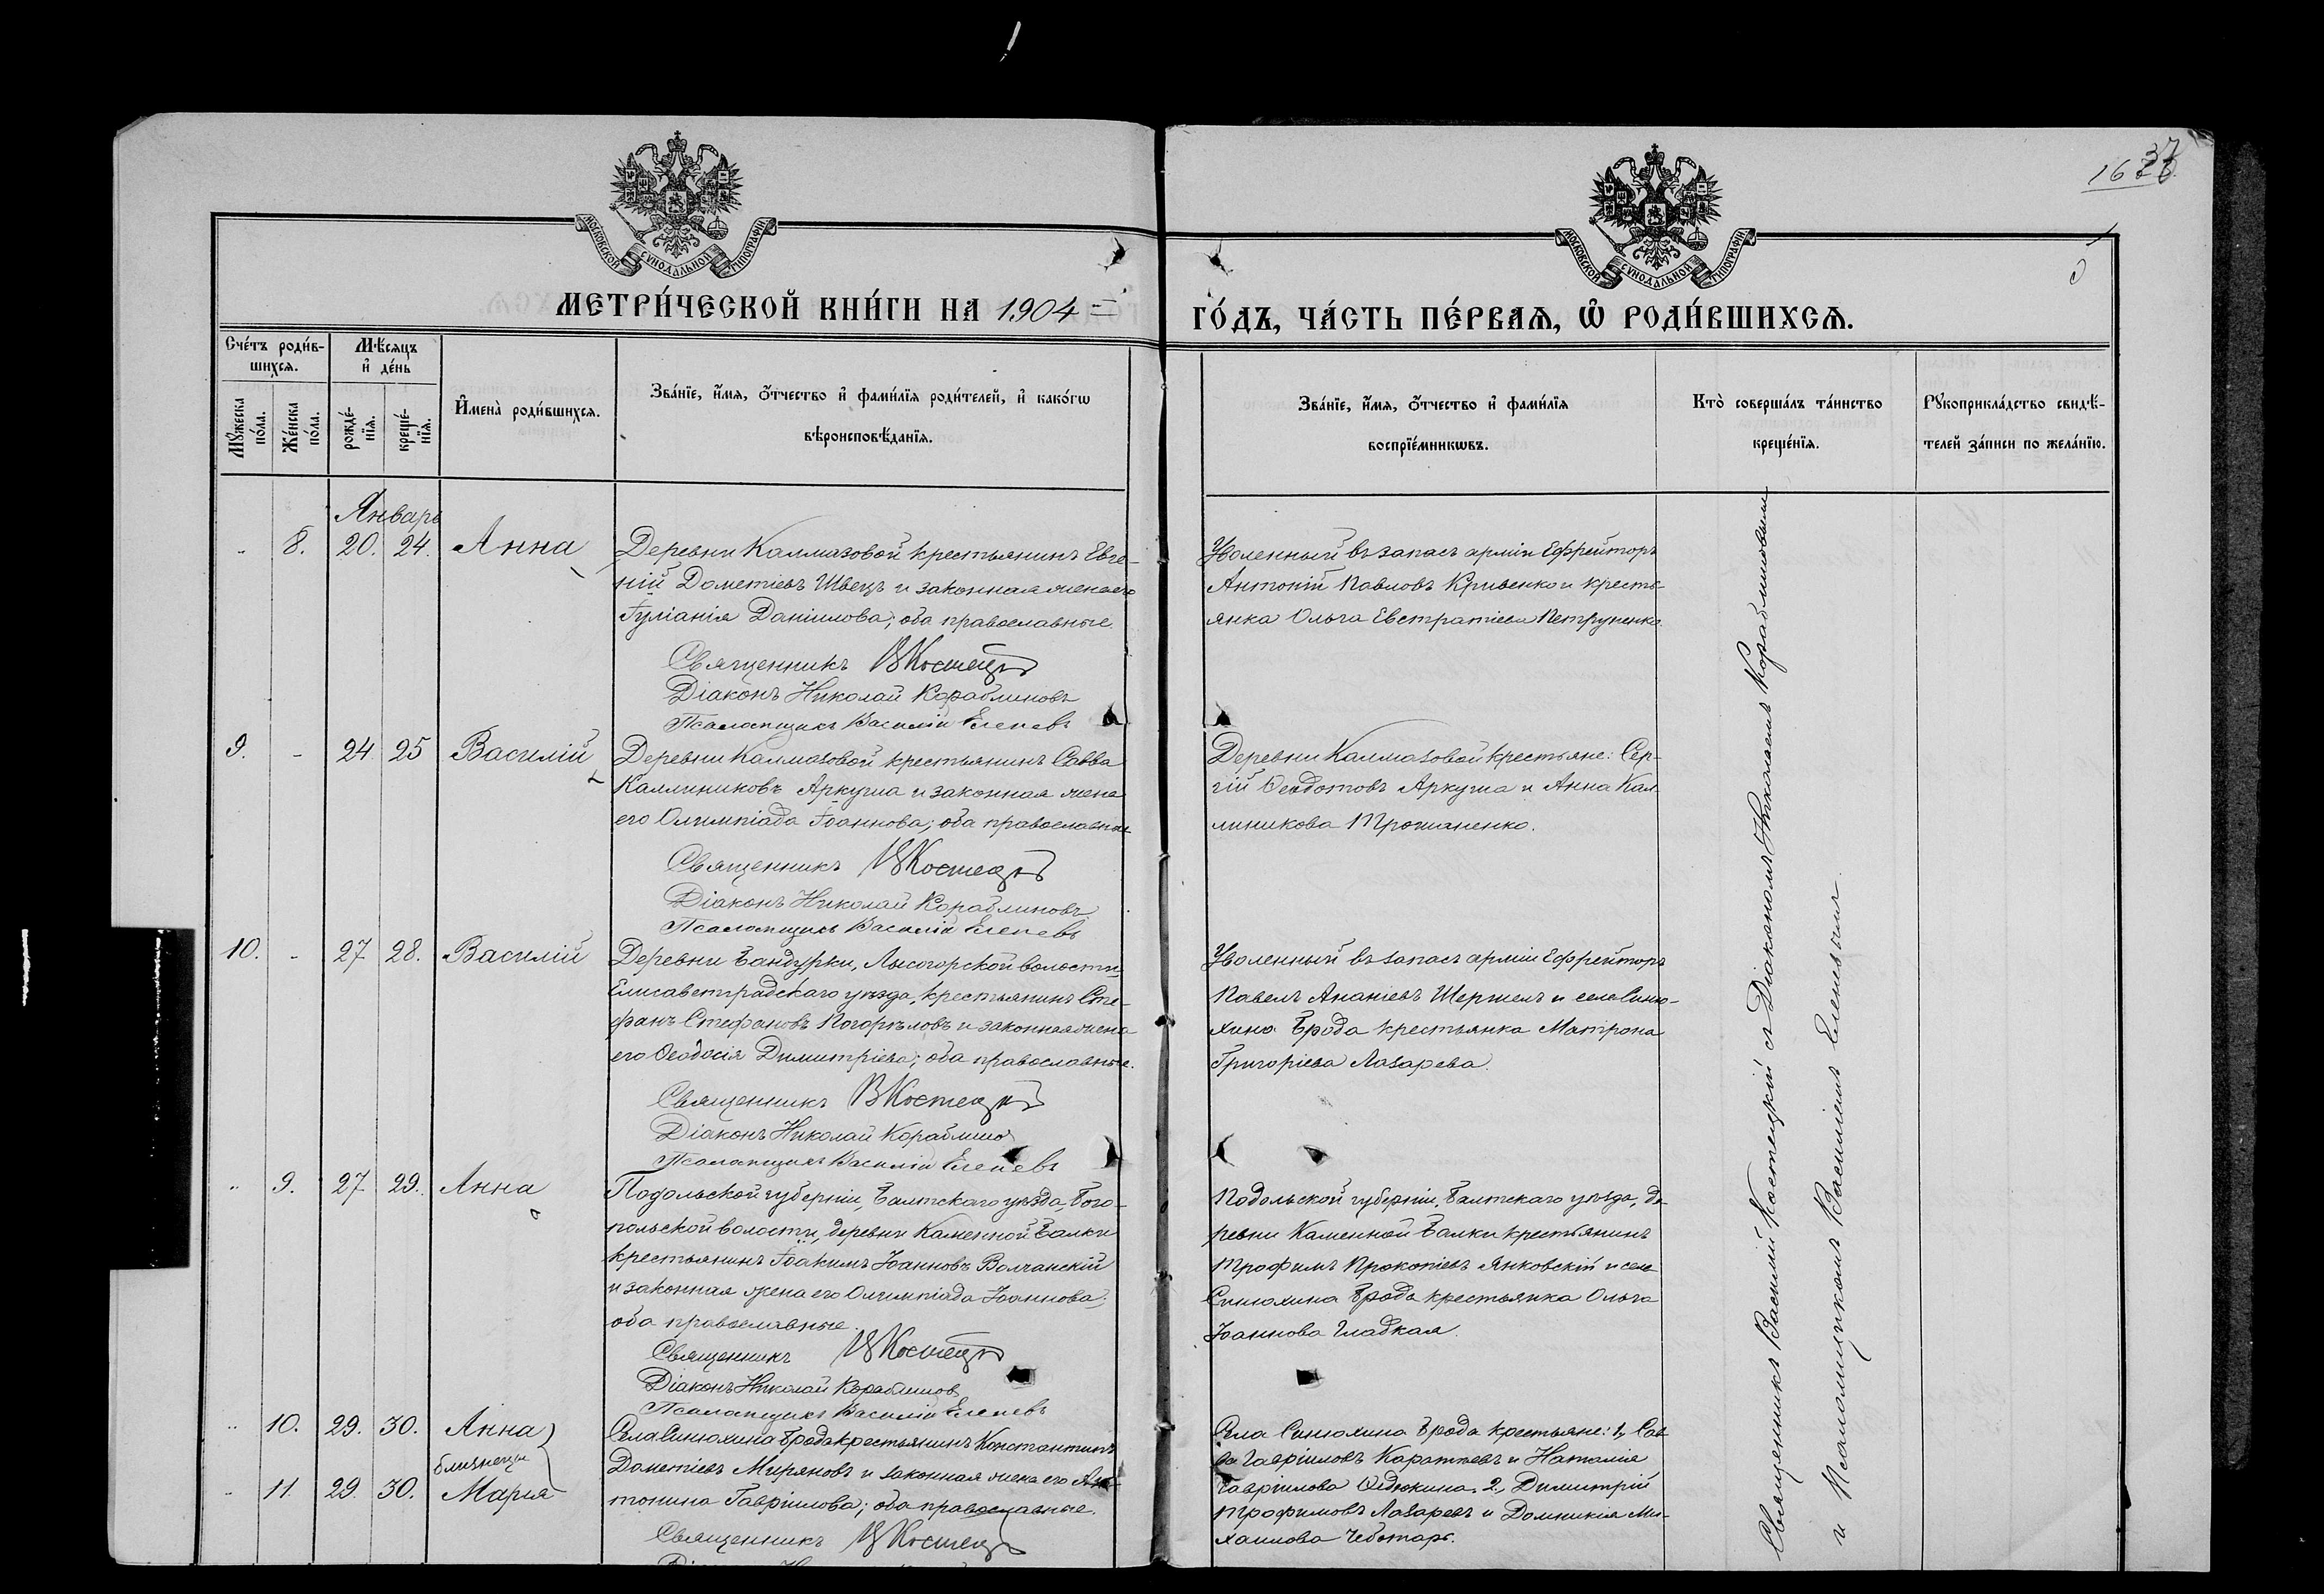 1637
МОСКОВСКОЙ СѴНОДАЛЬНОЙ ТИПОГРАФІИ
МОСКОВСКОЙ СѴНОДАЛЬНОЙ ТИПОГРАФІИ
МЕТРИ́ЧЕСКОЙ КНИ́ГИ НА 1904 =
ГО́ДЪ, ЧА́СТЬ ПЕ́РВАѦ, Ѡ҆ РОДИ́ВШИХСѦ.
Сче́тъ роди́в-
шихсѧ.
Мѣ́сѧцъ
и҆ де́нь
Мꙋ́жеска
по́ла.
Же́нска
по́ла.
рожде́-
нїѧ.
креще́-
нїѧ.
И҆мена̀ роди́вшихсѧ.
Зва́нїе, и҆́мѧ, ѻ҆́тчество и҆ фами́лїѧ роди́телей, и҆ како́гѡ
вѣроисповѣ́данїѧ.
Зва́нїе, и҆́мѧ, ѻ҆́тчество и҆ фами́лїѧ
воспрїе́мникѡвъ.
Кто̀ соверша́лъ та́инство
креще́нїѧ.
Рꙋкоприкла́дство свидѣ́-
телей за́писи по жела́нїю.
Январь
8. 20. 24. Анна
Деревни Калмазовой крестьянинъ Евге-
ній Дометіевъ Швецъ и законная жена его
Іуліанія Даніилова; оба православные.
Священникъ В Костецкій
Діаконъ Николай Кораблиновъ
Псаломщикъ Василій Еленевъ
Уволенный въ запасъ арміи Ефрейторъ
Антоній Павловъ Кривенко и кресть-
янка Ольга Евстратіева Петрупенко.
9. - 24 25 Василій
Деревни Калмазовой крестьянинъ Савва
Каллиниковъ Аркуша и законная жена
его Олимпіада Іоаннова; оба православные
Священникъ В Костецкій
Діаконъ Николай Кораблиновъ
Псаломщикъ Василій Еленевъ
Деревни Калмазовой крестьяне: Сер-
гій Ѳеодотовъ Аркуша и Анна Кал-
линикова Трошаненко.
10. - 27 28. Василій
Деревни Бандурки, Лысогорской волости,
Елисаветградскаго уѣзда, крестьянинъ Сте-
фанъ Стефановъ Погорѣловъ и законная жена
его Ѳеодосія Димитріева; оба православные.
Священникъ В Костецкій
Діаконъ Николай Кораблиновъ
Псаломщикъ Василій Еленевъ
Уволенный въ запасъ арміи Ефрейторъ
Павелъ Ананіевъ Шершелъ и села Синю-
хина Брода крестьянка Матрона
Григоріева Лазарева.
9. 27 29. Анна
Подольской губерніи, Балтскаго уѣзда, Бого-
польской волости, деревни Каменной Балки
крестьянинъ Іоакимъ Іоанновъ Волчанскій
и законная жена его Олимпіада Іоаннова;
оба православные.
Священникъ В Костецкій
Діаконъ Николай Кораблиновъ
Псаломщикъ Василій Еленевъ
Подольской губерніи, Балтскаго уѣзда, де-
ревни Каменной Балки крестьянинъ
Трофимъ Прокопіевъ Янковскій и села
Синюхина Брода крестьянка Ольга
Іоаннова Гладкая.
10. 29. 30. Анна
близнецы
11. 29. 30. Марія
Села Синюхина Брода крестьянинъ Константинъ
Дометіевъ Миряновъ и законная жена его Ан-
тонина Гавріилова; оба православные.
Священникъ В Костецкій
Села Синюхина Брода крестьяне: 1, Сав-
ва Гавріиловъ Каратаевъ и Наталія
Гавріилова Ѳедюкина. 2, Димитрій
Трофимовъ Лазаревъ и Домникія Ми-
хаилова Чеботарь.
Священникъ Василій Костецкій съ Діакономъ Николаемъ Кораблиновымъ
и Псаломщикомъ Василіемъ Еленевымъ.